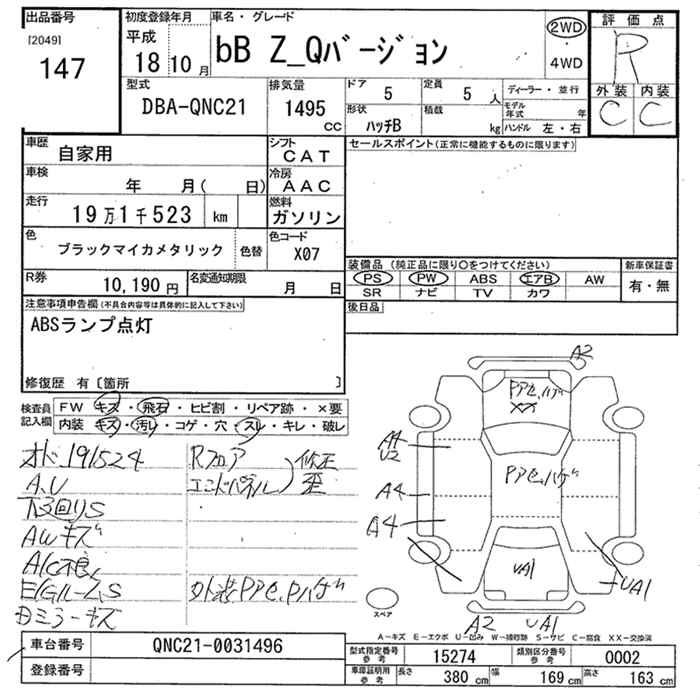 出品番号
[2049]
147
初度登録年月
平成
18 10 月
車名・グレード
bB Z_Qバージョン
2WD
・
4WD
評価点
R
外装 内装
C C
型式
DBA-QNC21
排気量
1495
CC
ドア
5
定員
5 人
形状
ハッチB
積載
kg
ディーラー・並行
モデル年式 年
ハンドル 左・右
車歴
自家用
シフト
CAT
車検
年 月( 日)
冷房
AAC
走行
19万1千523 km
燃料
ガソリン
色
ブラックマイカメタリック
色替
色コード
X07
R券
10,190 円
名変通知期限
月 日
セールスポイント(正常に機能するものに限ります)
装備品 (純正品に限り○をつけてください)
PS PW ABS エアB AW
SR ナビ TV カワ
新車保証書
有・無
後日品
注意事項申告欄(不具合内容等は具体的に記入して下さい)
ABSランプ点灯
修復歴 有〔箇所 〕
検査員
記入欄
FW キズ・飛石・ヒビ割・リペア跡・×要
内装 キズ・汚レ・コゲ・穴・スレ・キレ・破レ
オド.191524
A.U
下回りS
AWキズ
A/C不良
E/GルームS
Rフロア
エンドパネル
修正
歪
外装Pアセ,Pハゲ
A2
Pアセ,ハゲ
XX
A4
U2
Pアセ,ハゲ
A4
A4
UA1
UA1
スペア
A2 UA1
A-キズ E-エクボ U-凹み W-補修跡 S-サビ C-腐食 XX-交換済
車台番号
QNC21-0031496
登録番号
型式指定番号
参考
15274
類別区分番号
参考
0002
車庫証明用
参考
長さ
380 cm
幅
169 cm
高さ
163 cm